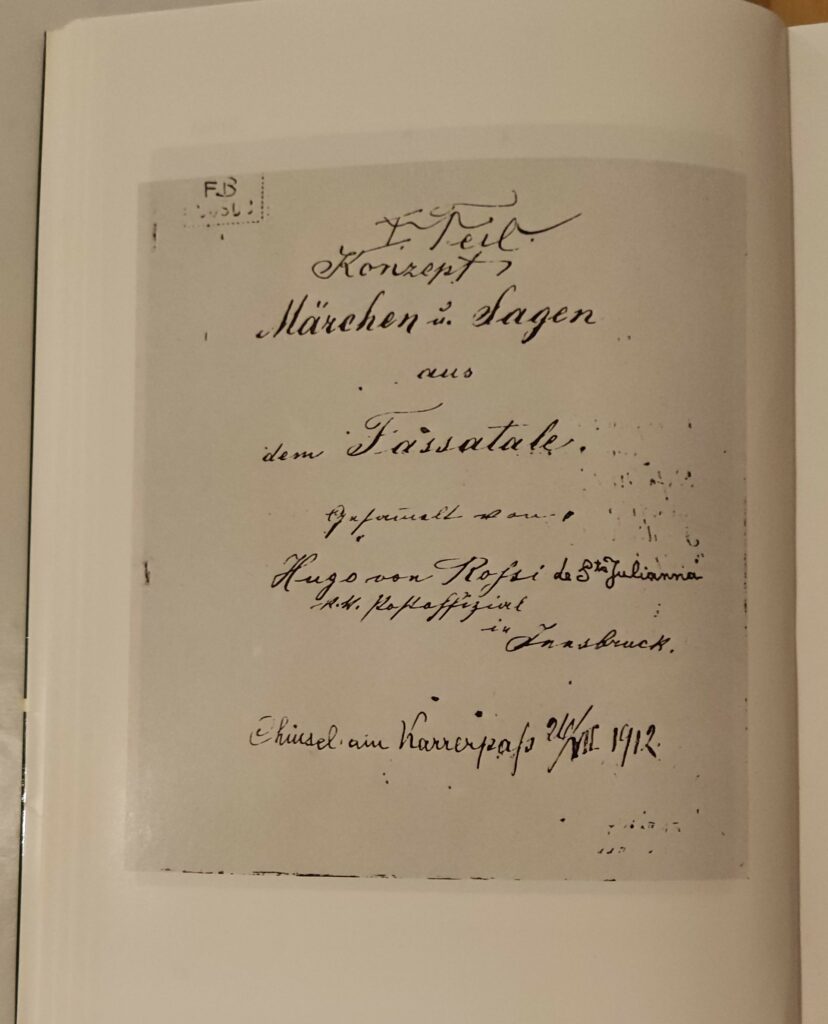 FB
I. Teil.
Konzept,
Märchen u. Sagen
aus
dem Fassatale.
Gesam̅elt von
Hugo von Rossi de Sta Julianna
k.k. Postoffizial
in Innsbruck.
am Karrerpaß 24/VII 1912.